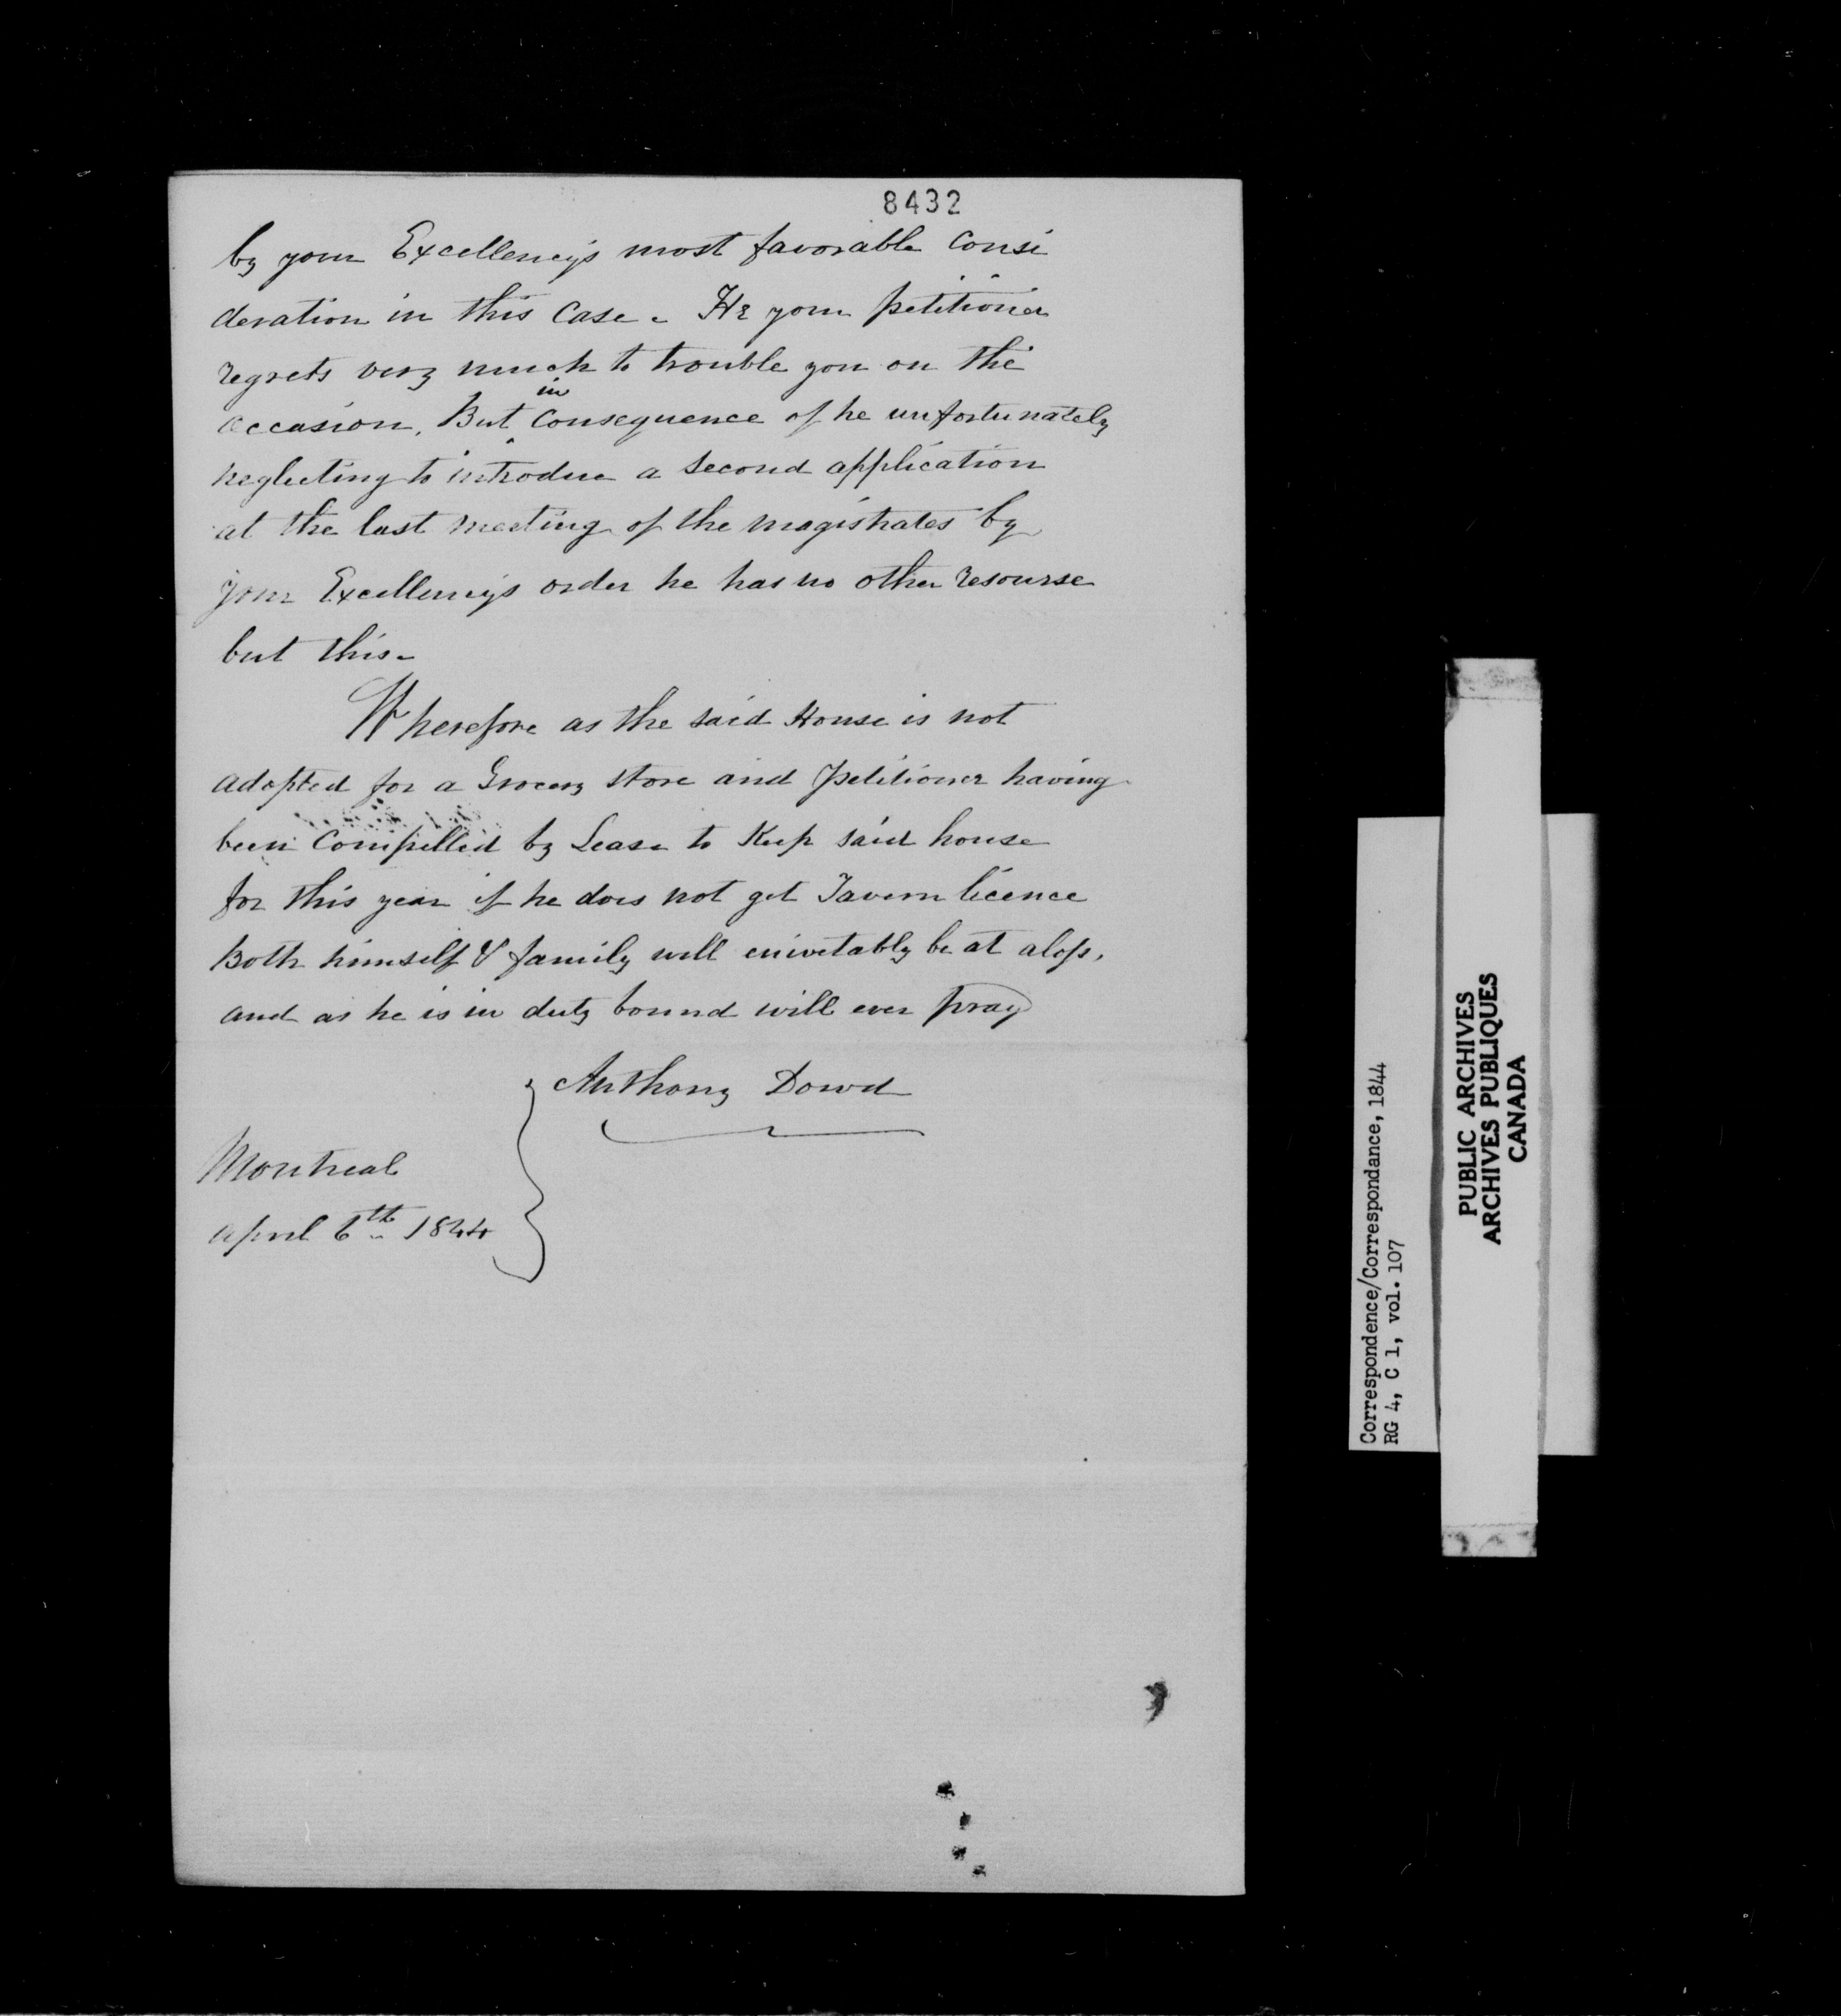 8432
by your Excellency's most favorable Consi
deration in this Case. He your petitioner
regrets very much to trouble you on the
occasion, But in Consequence of he unfortunately
neglecting to introduce a second application
at the last meeting of the magistrates by
your Excellency's order he has no other resourse
but this.
Wherefore as the said House is not
adapted for a Grocery store and petitioner having
been Compelled by Lease to Keep said house
for this year if he does not get Tavern licence
Both himself & family will enivetably be at aloss,
and as he is in duty bound will ever pray
Anthony Dowd
Montreal
april 6th 1844
Correspondence/Correspondance, 1844
RG 4, C 1, vol. 107
PUBLIC ARCHIVES
ARCHIVES PUBLIQUES
CANADA